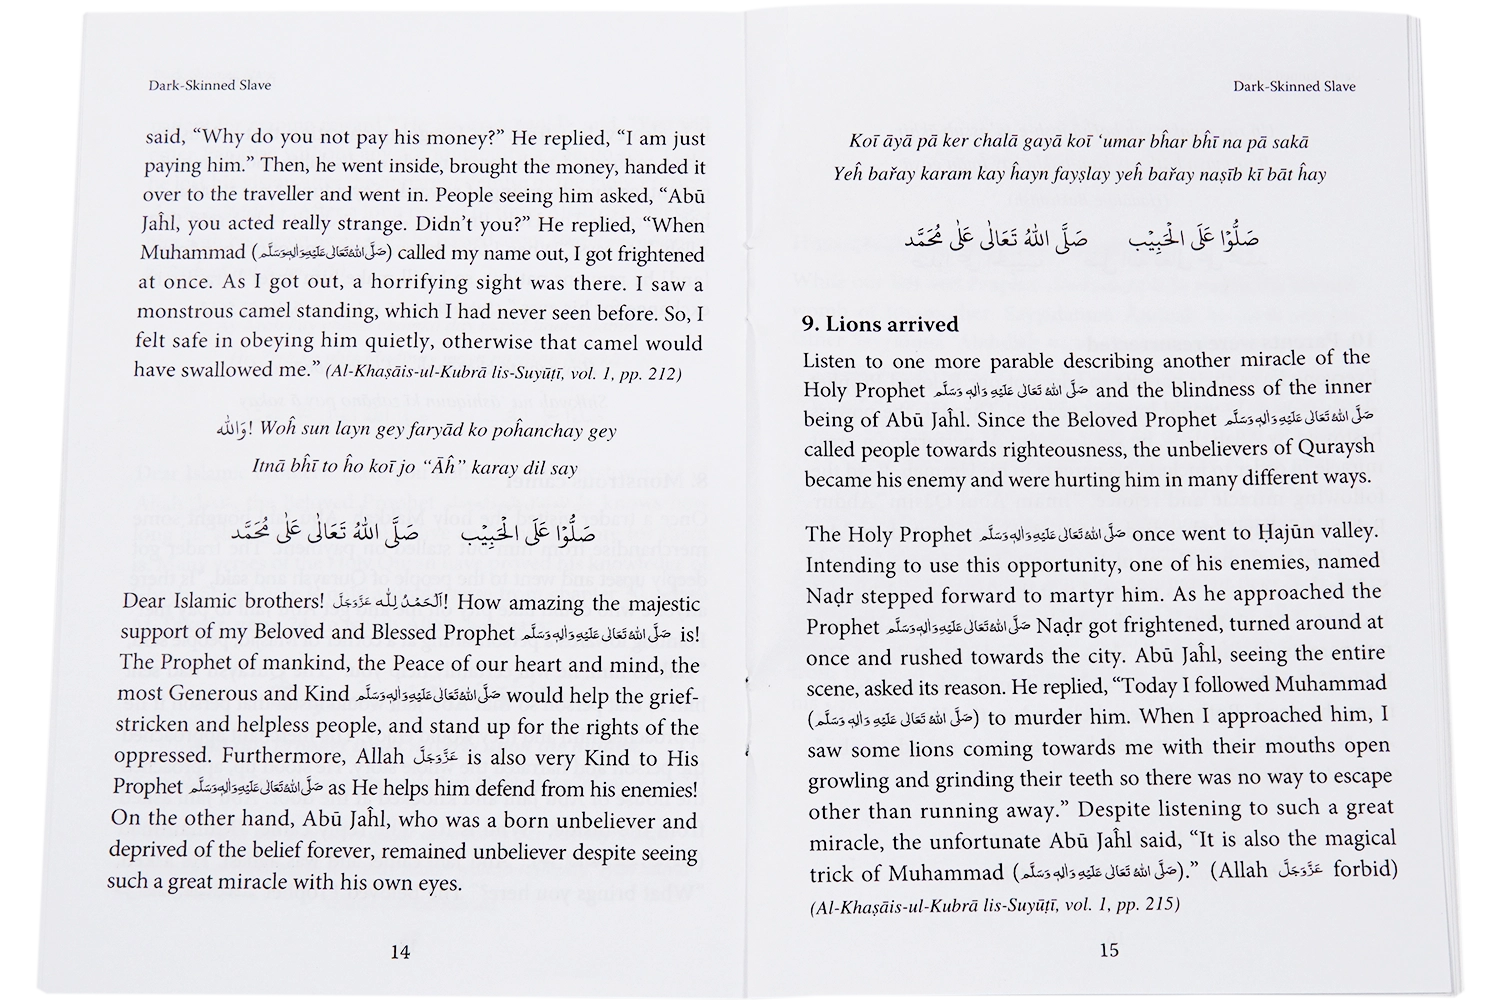 Dark-Skinned Slave
said, “Why do you not pay his money?” He replied, “I am just
paying him.” Then, he went inside, brought the money, handed it
over to the traveller and went in. People seeing him asked, “Abū
Jaĥl, you acted really strange. Didn’t you?” He replied, “When
Muhammad (صَلَّى اللهُ تَعَالٰى عَلَيْهِ وَاٰلِهٖ وَسَلَّم) called my name out, I got frightened
at once. As I got out, a horrifying sight was there. I saw a
monstrous camel standing, which I had never seen before. So, I
felt safe in obeying him quietly, otherwise that camel would
have swallowed me.” (Al-Khaṣāis-ul-Kubrā lis-Suyūṭī, vol. 1, pp. 212)
وَاللّٰه! Woĥ sun layn gey faryād ko poĥanchay gey
Itnā bĥī to ĥo koī jo “Āĥ” karay dil say
صَلُّوْا عَلَى الْحَبِيْب صَلَّى اللهُ تَعَالٰى عَلٰى مُحَمَّد
Dear Islamic brothers! اَلْحَمْدُ لِلّٰه عَزَّوَجَلَّ! How amazing the majestic
support of my Beloved and Blessed Prophet صَلَّى اللهُ تَعَالٰى عَلَيْهِ وَاٰلِهٖ وَسَلَّم is!
The Prophet of mankind, the Peace of our heart and mind, the
most Generous and Kind صَلَّى اللهُ تَعَالٰى عَلَيْهِ وَاٰلِهٖ وَسَلَّم would help the grief-
stricken and helpless people, and stand up for the rights of the
oppressed. Furthermore, Allah عَزَّوَجَلَّ is also very Kind to His
Prophet صَلَّى اللهُ تَعَالٰى عَلَيْهِ وَاٰلِهٖ وَسَلَّم as He helps him defend from his enemies!
On the other hand, Abū Jaĥl, who was a born unbeliever and
deprived of the belief forever, remained unbeliever despite seeing
such a great miracle with his own eyes.
14
Dark-Skinned Slave
Koī āyā pā ker chalā gayā koī ‘umar bĥar bĥī na pā sakā
Yeĥ bařay karam kay ĥayn fayṣlay yeĥ bařay naṣīb kī bāt ĥay
صَلُّوْا عَلَى الْحَبِيْب صَلَّى اللهُ تَعَالٰى عَلٰى مُحَمَّد
9. Lions arrived
Listen to one more parable describing another miracle of the
Holy Prophet صَلَّى اللهُ تَعَالٰى عَلَيْهِ وَاٰلِهٖ وَسَلَّم and the blindness of the inner
being of Abū Jaĥl. Since the Beloved Prophet صَلَّى اللهُ تَعَالٰى عَلَيْهِ وَاٰلِهٖ وَسَلَّم
called people towards righteousness, the unbelievers of Quraysh
became his enemy and were hurting him in many different ways.
The Holy Prophet صَلَّى اللهُ تَعَالٰى عَلَيْهِ وَاٰلِهٖ وَسَلَّم once went to Ḥajūn valley.
Intending to use this opportunity, one of his enemies, named
Naḍr stepped forward to martyr him. As he approached the
Prophet صَلَّى اللهُ تَعَالٰى عَلَيْهِ وَاٰلِهٖ وَسَلَّم Naḍr got frightened, turned around at
once and rushed towards the city. Abū Jaĥl, seeing the entire
scene, asked its reason. He replied, “Today I followed Muhammad
(صَلَّى اللهُ تَعَالٰى عَلَيْهِ وَاٰلِهٖ وَسَلَّم) to murder him. When I approached him, I
saw some lions coming towards me with their mouths open
growling and grinding their teeth so there was no way to escape
other than running away.” Despite listening to such a great
miracle, the unfortunate Abū Jaĥl said, “It is also the magical
trick of Muhammad (صَلَّى اللهُ تَعَالٰى عَلَيْهِ وَاٰلِهٖ وَسَلَّم).” (Allah عَزَّوَجَلَّ forbid)
(Al-Khaṣāis-ul-Kubrā lis-Suyūṭī, vol. 1, pp. 215)
15